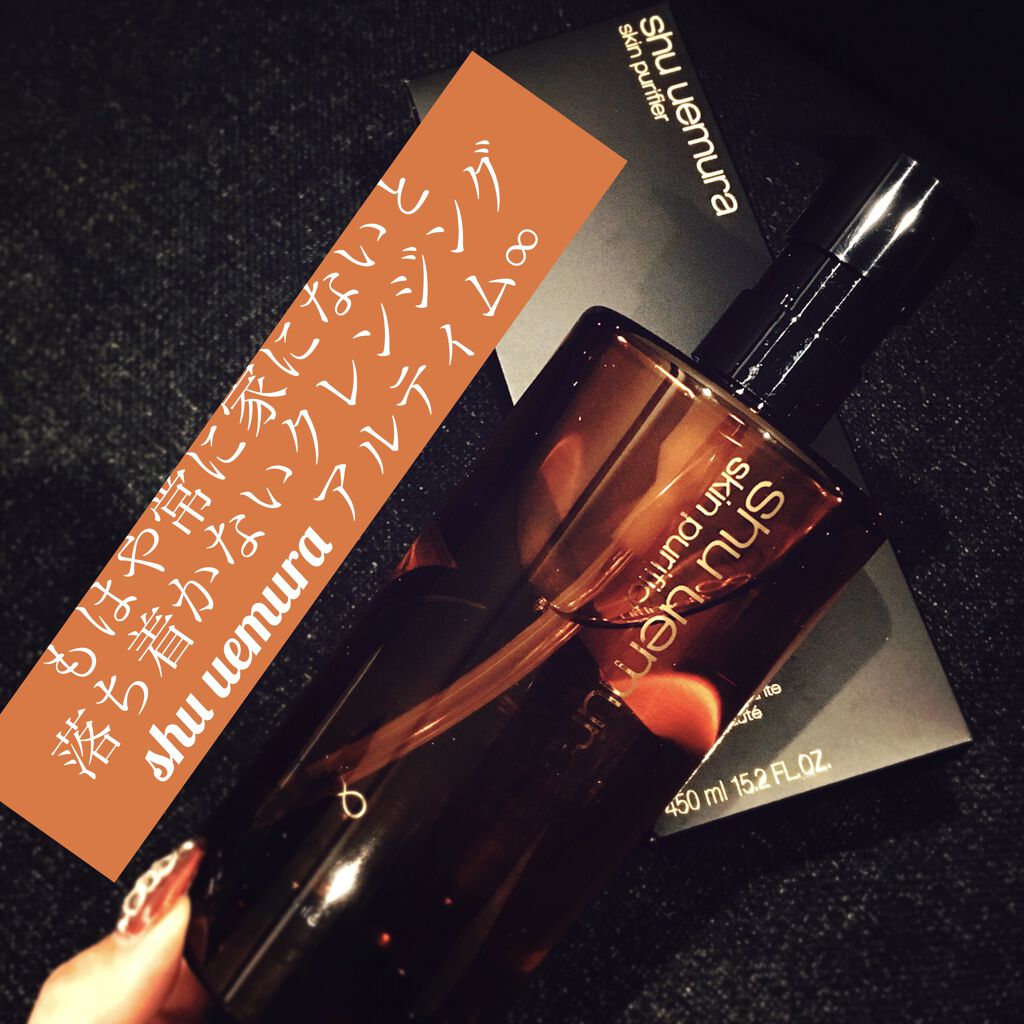 もはや常に家にないと
落ち着かないクレンジング
shu uemura アルティム∞
shu uemura
skin purifier
shu uem
skin purifi
450 ml 15.2 FL.OZ.